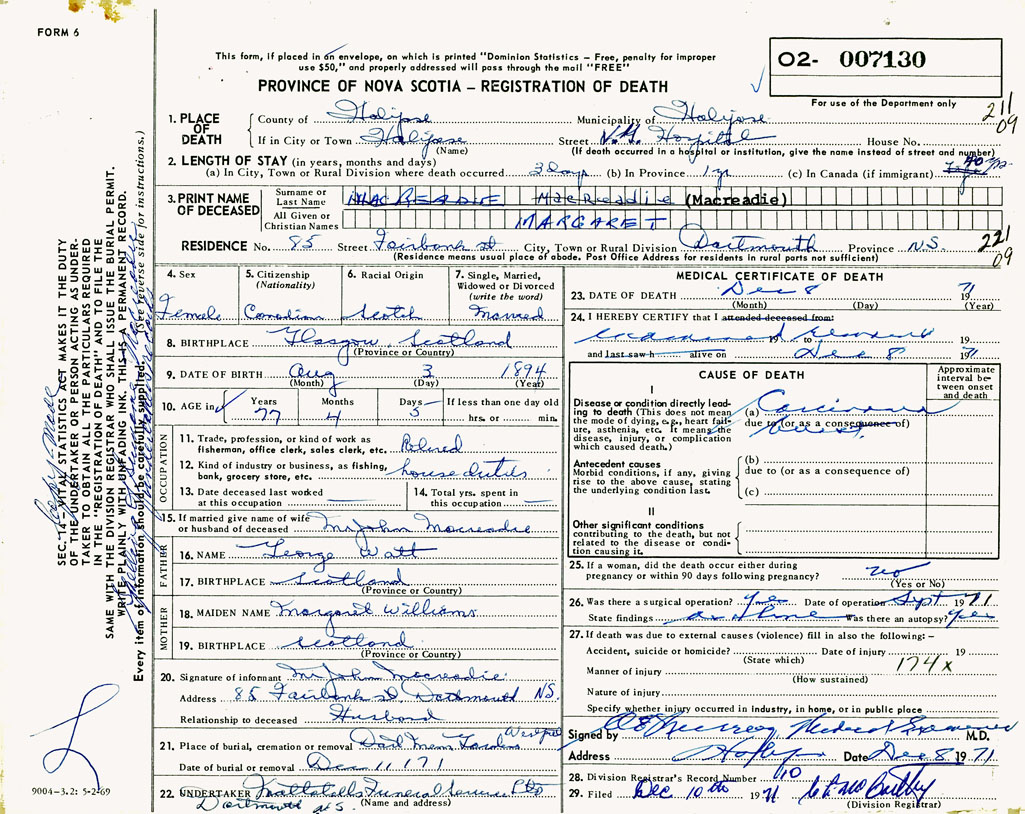 FORM 6
This form, if placed in an envelope, on which is printed "Dominion Statistics - Free, penalty for improper
use $50," and properly addressed will pass through the mail "FREE"
PROVINCE OF NOVA SCOTIA – REGISTRATION OF DEATH
02- 007130
For use of the Department only
211
09
1. PLACE OF DEATH
County of Halifax Municipality of Halifax
If in City or Town Halifax Street V.G. Hospital House No.
(Name) (If death occurred in a hospital or institution, give the name instead of street and number)
2. LENGTH OF STAY (in years, months and days)
(a) In City, Town or Rural Division where death occurred 3 Days (b) In Province 1 yr (c) In Canada (if immigrant)
3. PRINT NAME OF DECEASED
Surname or Last Name MACREADIE MacReadie (Macreadie)
All Given or Christian Names MARGARET
RESIDENCE No. 85 Street Fairbank St City, Town or Rural Division Dartmouth Province N.S.
(Residence means usual place of abode. Post Office Address for residents in rural parts not sufficient)
221
09
4. Sex Female
5. Citizenship (Nationality) Canadian
6. Racial Origin Scotch
7. Single, Married, Widowed or Divorced (write the word) Married
8. BIRTHPLACE Glasgow, Scotland
(Province or Country)
9. DATE OF BIRTH Aug 3 1894
(Month) (Day) (Year)
10. AGE in Years 77 Months 4 Days 5 If less than one day old hrs. or min.
OCCUPATION
11. Trade, profession, or kind of work as fisherman, office clerk, sales clerk, etc. Retired
12. Kind of industry or business, as fishing, bank, grocery store, etc. house duties
13. Date deceased last worked at this occupation
14. Total yrs. spent in this occupation
15. If married give name of wife or husband of deceased Mr John Macreadie
FATHER
16. NAME George Watt
17. BIRTHPLACE Scotland
(Province or Country)
MOTHER
18. MAIDEN NAME Margaret Williams
19. BIRTHPLACE Scotland
(Province or Country)
20. Signature of informant Mr John Macreadie
Address 85 Fairbank St, Dartmouth NS.
Relationship to deceased Husband
21. Place of burial, cremation or removal Dart Mem Gardens
Date of burial or removal Dec 11 171
22. UNDERTAKER Funeral Service Ltd
Dartmouth N.S. (Name and address)
MEDICAL CERTIFICATE OF DEATH
23. DATE OF DEATH Dec 8 1971
(Month) (Day) (Year)
24. I HEREBY CERTIFY that I attended deceased from:
examined 19 to remains
and last saw h alive on Dec 8 1971
CAUSE OF DEATH
Approximate interval between onset and death
I
Disease or condition directly leading to death (This does not mean the mode of dying, e.g., heart failure, asthenia, etc. It means the disease, injury, or complication which caused death.)
(a) Carcinoma
due to (or as a consequence of)
breast
Antecedent causes
Morbid conditions, if any, giving rise to the above cause, stating the underlying condition last.
(b)
due to (or as a consequence of)
(c)
II
Other significant conditions contributing to the death, but not related to the disease or condition causing it.
25. If a woman, did the death occur either during pregnancy or within 90 days following pregnancy? no
(Yes or No)
26. Was there a surgical operation? yes Date of operation Sept 1971
State findings as above Was there an autopsy? yes
27. If death was due to external causes (violence) fill in also the following:–
Accident, suicide or homicide? Date of injury 19
(State which)
174x
Manner of injury
(How sustained)
Nature of injury
Specify whether injury occurred in industry, in home, or in public place
Signed by Medical Examiner M.D.
Address Hfx Date Dec 8 1971
28. Division Registrar's Record Number 110
29. Filed Dec 10th 1971
(Division Registrar)
SEC. 14 – VITAL STATISTICS ACT MAKES IT THE DUTY
OF THE UNDERTAKER OR PERSON ACTING AS UNDER-
TAKER TO OBTAIN ALL THE PARTICULARS REQUIRED
IN THE "REGISTRATION OF DEATH" AND TO FILE THE
SAME WITH THE DIVISION REGISTRAR WHO SHALL ISSUE THE BURIAL PERMIT.
WRITE PLAINLY WITH UNFADING INK. THIS IS A PERMANENT RECORD.
Every item of information should be carefully supplied. (See reverse side for instructions.)
9004–3.2: 5-2-69